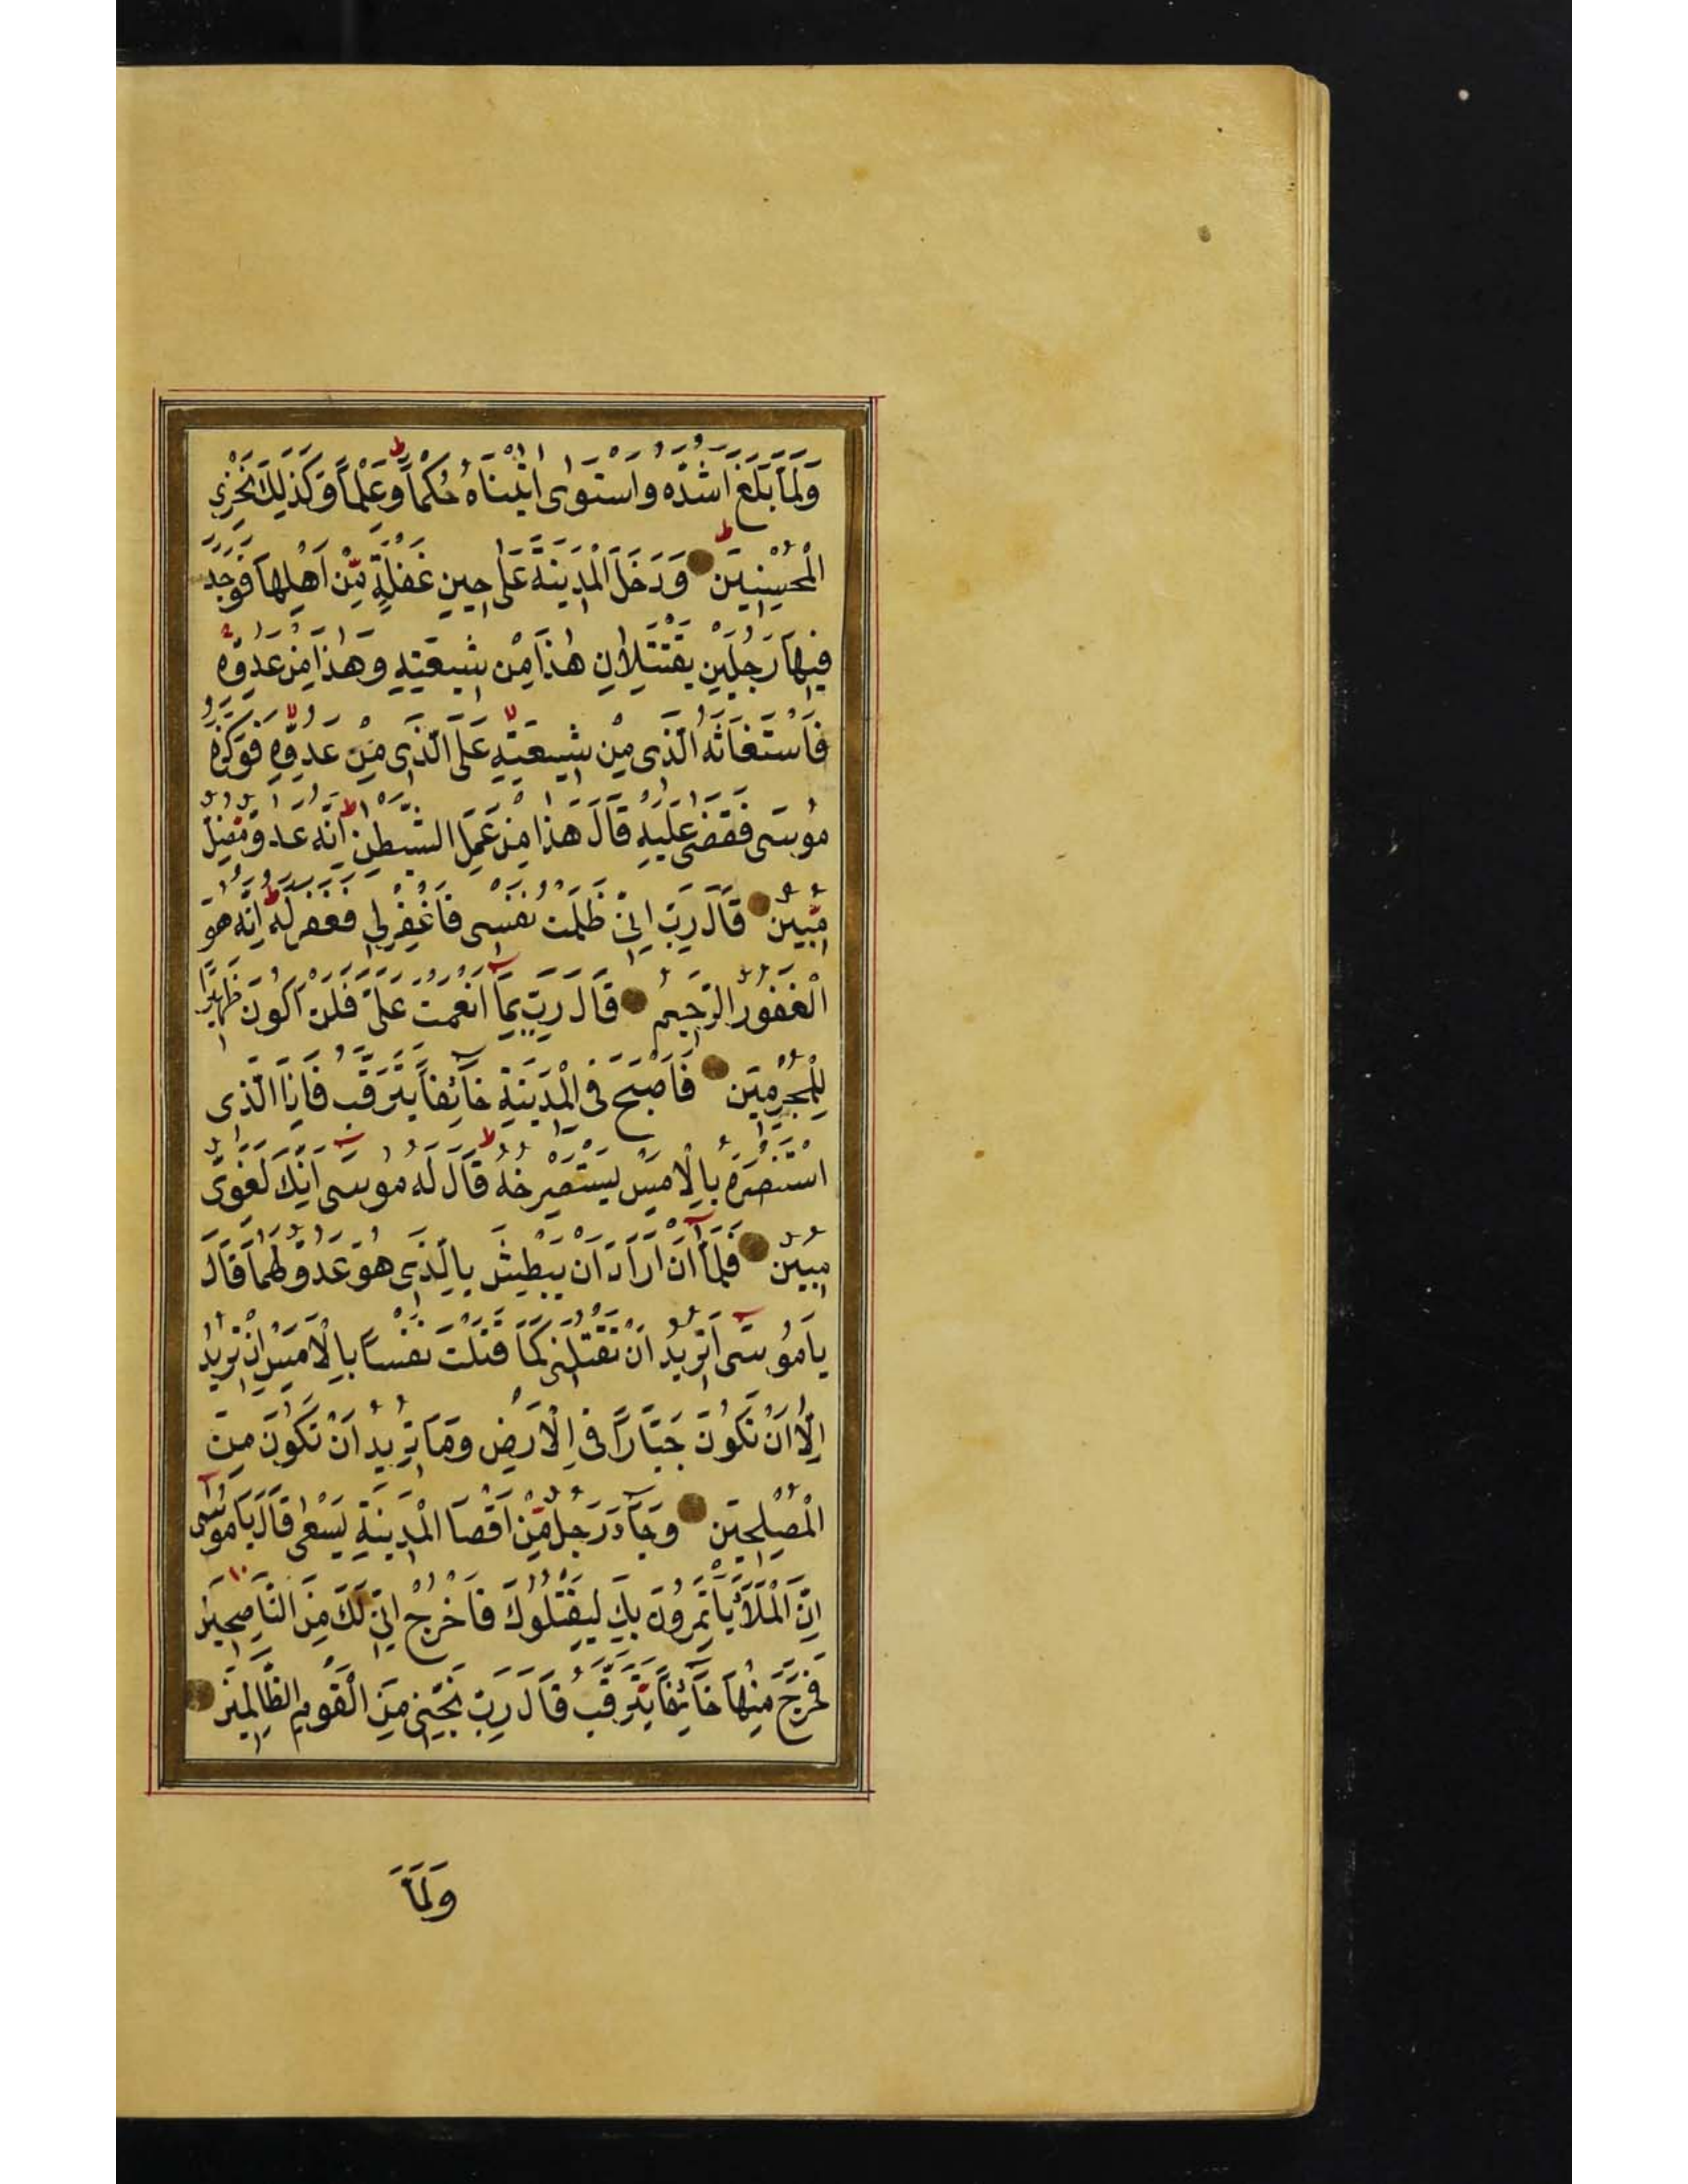 وَلَمَّا بَلَغَ اَشُدَّهُ وَاسْتَوٰى اٰتَيْنَاهُ حُكْمًا وَعِلْمًا وَكَذٰلِكَ نَجْزِي
الْمُحْسِنِينَ وَدَخَلَ الْمَدِينَةَ عَلٰى حِينِ غَفْلَةٍ مِّنْ اَهْلِهَا فَوَجَدَ
فِيهَا رَجُلَيْنِ يَقْتَتِلَانِ هٰذَا مِنْ شِيعَتِهِ وَهٰذَا مِنْ عَدُوِّهِ
فَاسْتَغَاثَهُ الَّذِى مِنْ شِيعَتِهِ عَلَى الَّذِى مِنْ عَدُوِّهِ فَوَكَزَهُ
مُوسٰى فَقَضٰى عَلَيْهِ قَالَ هٰذَا مِنْ عَمَلِ الشَّيْطٰنِ اِنَّهُ عَدُوٌّ مُضِلٌّ
مُّبِينٌ قَالَ رَبِّ اِنِّى ظَلَمْتُ نَفْسِى فَاغْفِرْلِى فَغَفَرَ لَهُ اِنَّهُ هُوَ
الْغَفُورُ الرَّحِيمُ قَالَ رَبِّ بِمَا اَنْعَمْتَ عَلَىَّ فَلَنْ اَكُونَ ظَهِيرًا
لِلْمُجْرِمِينَ فَاَصْبَحَ فِى الْمَدِينَةِ خَآئِفًا يَتَرَقَّبُ فَاِذَا الَّذِى
اسْتَنْصَرَهُ بِالْاَمْسِ يَسْتَصْرِخُهُ قَالَ لَهُ مُوسٰى اِنَّكَ لَغَوِىٌّ
مُبِينٌ فَلَمَّا اَنْ اَرَادَ اَنْ يَبْطِشَ بِالَّذِى هُوَ عَدُوٌّ لَهُمَا قَالَ
يَامُوسٰى اَتُرِيدُ اَنْ تَقْتُلَنِى كَمَا قَتَلْتَ نَفْسًا بِالْاَمْسِ اِنْ تُرِيدُ
اِلَّا اَنْ تَكُونَ جَبَّارًا فِى الْاَرْضِ وَمَا تُرِيدُ اَنْ تَكُونَ مِنَ
الْمُصْلِحِينَ وَجَآءَ رَجُلٌ مِّنْ اَقْصَا الْمَدِينَةِ يَسْعٰى قَالَ يَامُوسٰى
اِنَّ الْمَلَاَ يَأْتَمِرُونَ بِكَ لِيَقْتُلُوكَ فَاخْرُجْ اِنِّى لَكَ مِنَ النَّاصِحِينَ
فَخَرَجَ مِنْهَا خَآئِفًا يَتَرَقَّبُ قَالَ رَبِّ نَجِّنِى مِنَ الْقَوْمِ الظَّالِمِينَ
وَلَمَّا